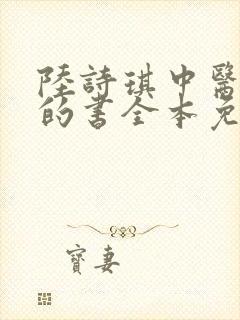 陸詩琪中醫
的書全本免
寶妻